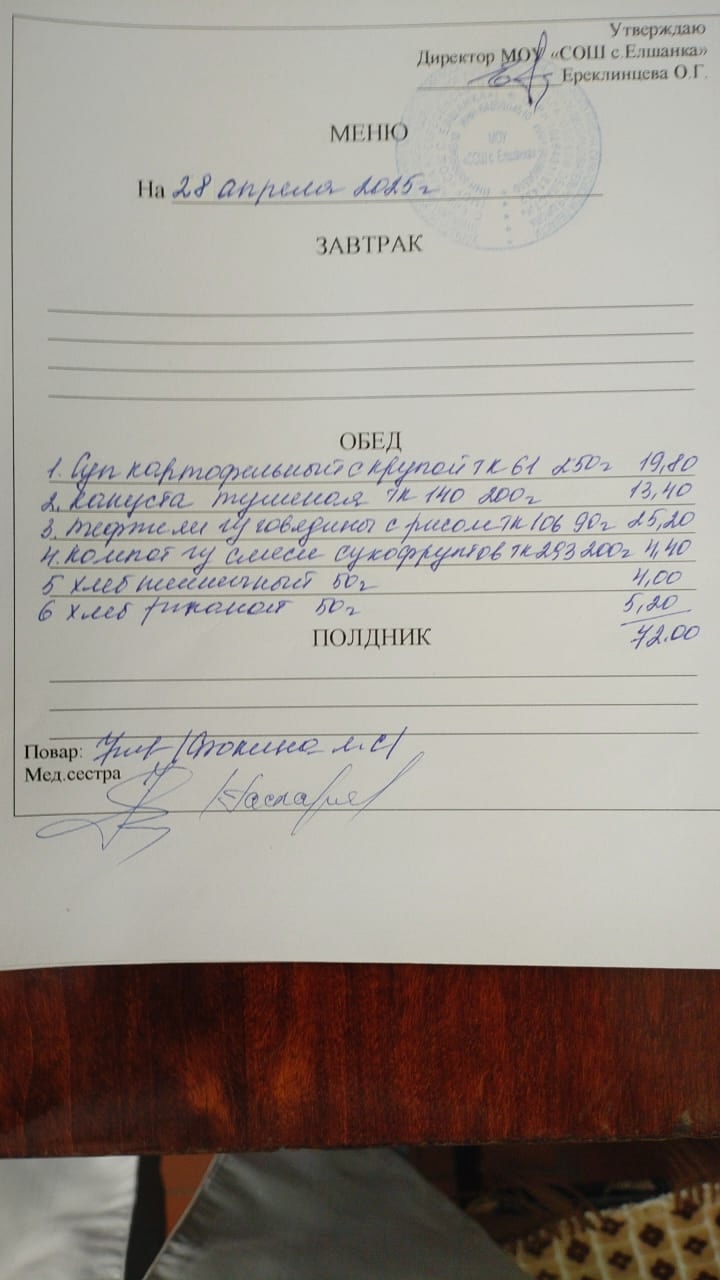 Утверждаю
Директор МОУ «СОШ с.Елшанка»
Ереклинцева О.Г.
МОУ
«СОШ с. Елшанка»
МЕНЮ
На 28 апреля 2025г
ЗАВТРАК
ОБЕД
1. Суп картофельный с крупой тк 61 250г 19,80
2. Капуста тушеная тк 140 200г 13,40
3. Тефтели из говядины с рисом тк 106 90г 25,20
4. Компот из смеси сухофруктов тк 293 200г 4,40
5 хлеб пшеничный 50г 4,00
6 хлеб ржаной 50г 5,20
72.00
ПОЛДНИК
Повар:
Мед.сестра